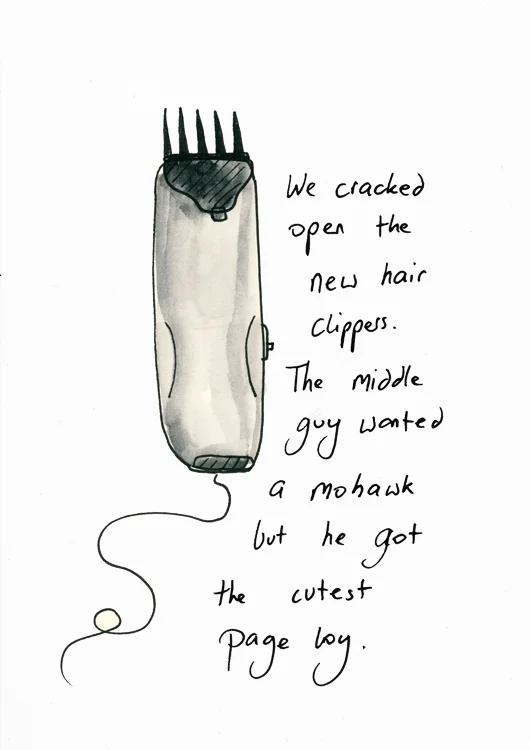 We cracked
open the
new hair
clippers.
The middle
guy wanted
a mohawk
but he got
the cutest
page boy.